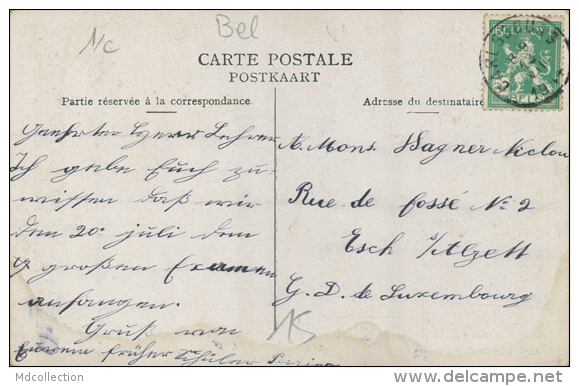 Bel
CARTE POSTALE
POSTKAART
Partie réservée à la correspondance.
Adresse du destinataire
Geehrter Herr Lehrer
Ich gebe Euch zu
wissen daß wir
den 20. juli den
großen Examen
anfangen.
Gruß von
Eurem früher Schüler
A. Mons. Wagner Niclou
Rue de fossé No 2
Esch s/Alzett
G. D. de Luxembourg
15
Mdcollection
http://www.delcampe.net